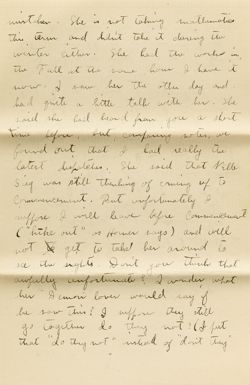 her. She is not taking mathematics
this term and didn't take it during the
winter either. She had the works in
the Fall at the same hour I have it
now. I saw her the other day and
had quite a little talk with her. She
said she had heard from you a short
time before, but comparing notes we
found out that I had really the
latest dispatches. She said that Nelle
was still thinking of coming up to
Commencement. But unfortunately I
suppose I will leave before Commencement
("hike out" as Homer says) and will
not get to take her around to
see the sights. Don't you think that
awfully unfortunate? I wonder what
her Demon lover would say if
he saw this? I suppose they still
go together do they not? (I put
that "do they not" instead of "don't they"